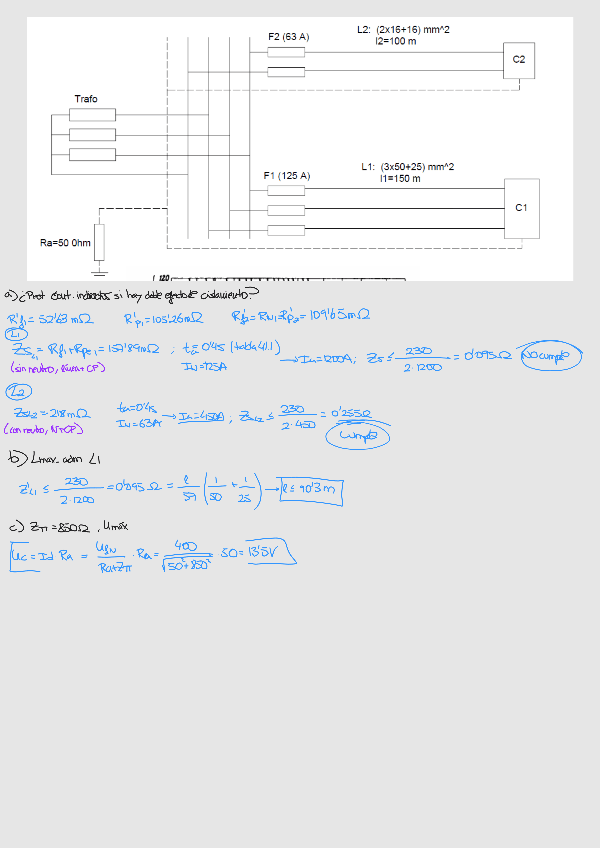 F2 (63 A)
L2: (2x16+16) mm^2
l2=100 m
C2
Trafo
F1 (125 A)
L1: (3x50+25) mm^2
l1=150 m
C1
Ra=50 Ohm
1 120
a) ¿Prot cont. indirectos si hay doble defecto de aislamiento?
R'f1 = 52'63 mΩ R'p1 = 105'26 mΩ R'f2 = RN2 = R'p2 = 109'65 mΩ
L1
ZSL1 = Rf1 + RPE1 = 157'89 mΩ ; ta = 0'4s (tabla 41.1)
(sin neutro, fase + CP) IN = 125A → Ia = 1200A; ZS ≤ 230 / 2·1200 = 0'095 Ω No cumple
L2
ZSL2 = 218 mΩ ta = 0'4s
(con neutro, N+CP) IN = 63A → Ia = 450A ; ZSL2 ≤ 230 / 2·450 = 0'255 Ω
Cumple
b) Lmax. adm L1
Z'L1 ≤ 230 / 2·1200 = 0'095 Ω = l / 57 (1/50 + 1/25) → l ≤ 90'3 m
c) ZTI = 850 Ω , Umáx
Uc = Id Ra = UfN / Ra+ZTI · Ra = 400 / √50²+850² 50 = 13'5V